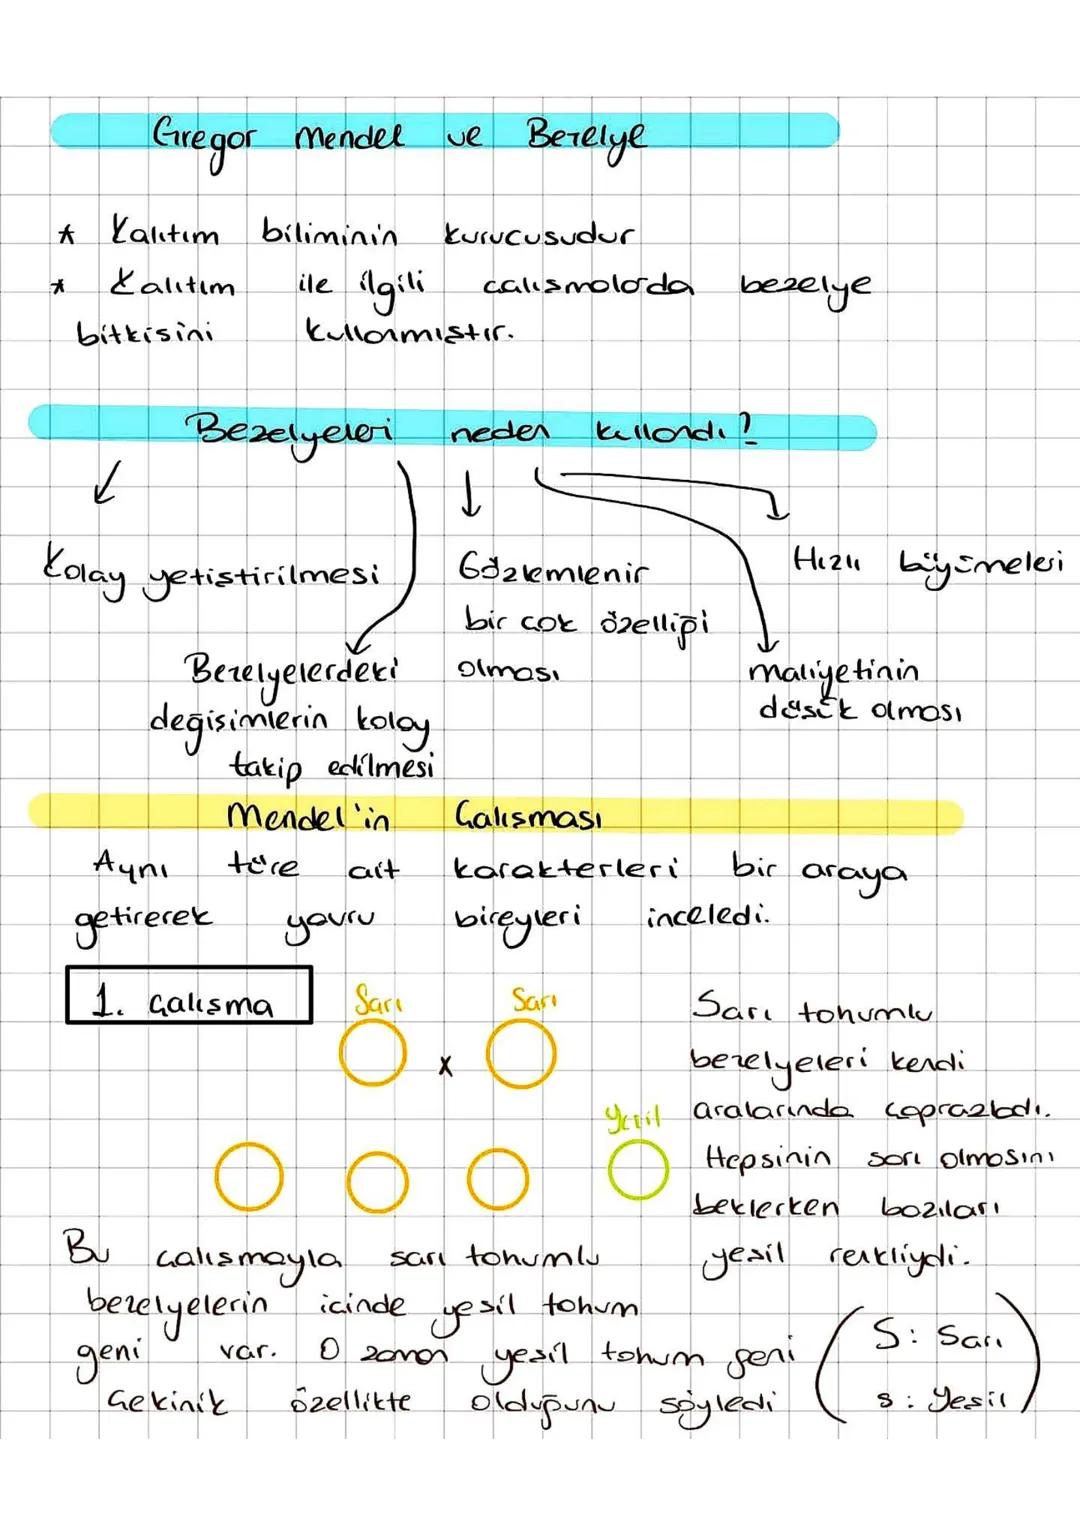 Gregor Mendel ve Bezelye
* Kalıtım biliminin kurucusudur
* Kalıtım ile ilgili calısmalarda bezelye
bitkisini kullanmıstır.
Bezelyeleri neden kullandı?
Kolay yetistirilmesi
Gözlemlenir
bir cok özelliği
olması
Hızlı büyümeleri
Bezelyelerdeki
değisimlerin kolay
takip edilmesi
maliyetinin
düsük olması
Mendel'in Calısması
Aynı türe ait karakterleri bir araya
getirerek yavru bireyleri inceledi.
1. Calısma
Sarı Sarı
x
Yesil
Sarı tohumlu
bezelyeleri kendi
aralarında caprazladı.
Hepsinin sarı olmasını
beklerken bazıları
yesil renkliydi.
Bu calısmayla sarı tohumlu
bezelyelerin icinde yesil tohum
geni var. O zaman yesil tohum geni
Cekinik özellikte olduğunu söyledi
S: Sarı
s: Yesil